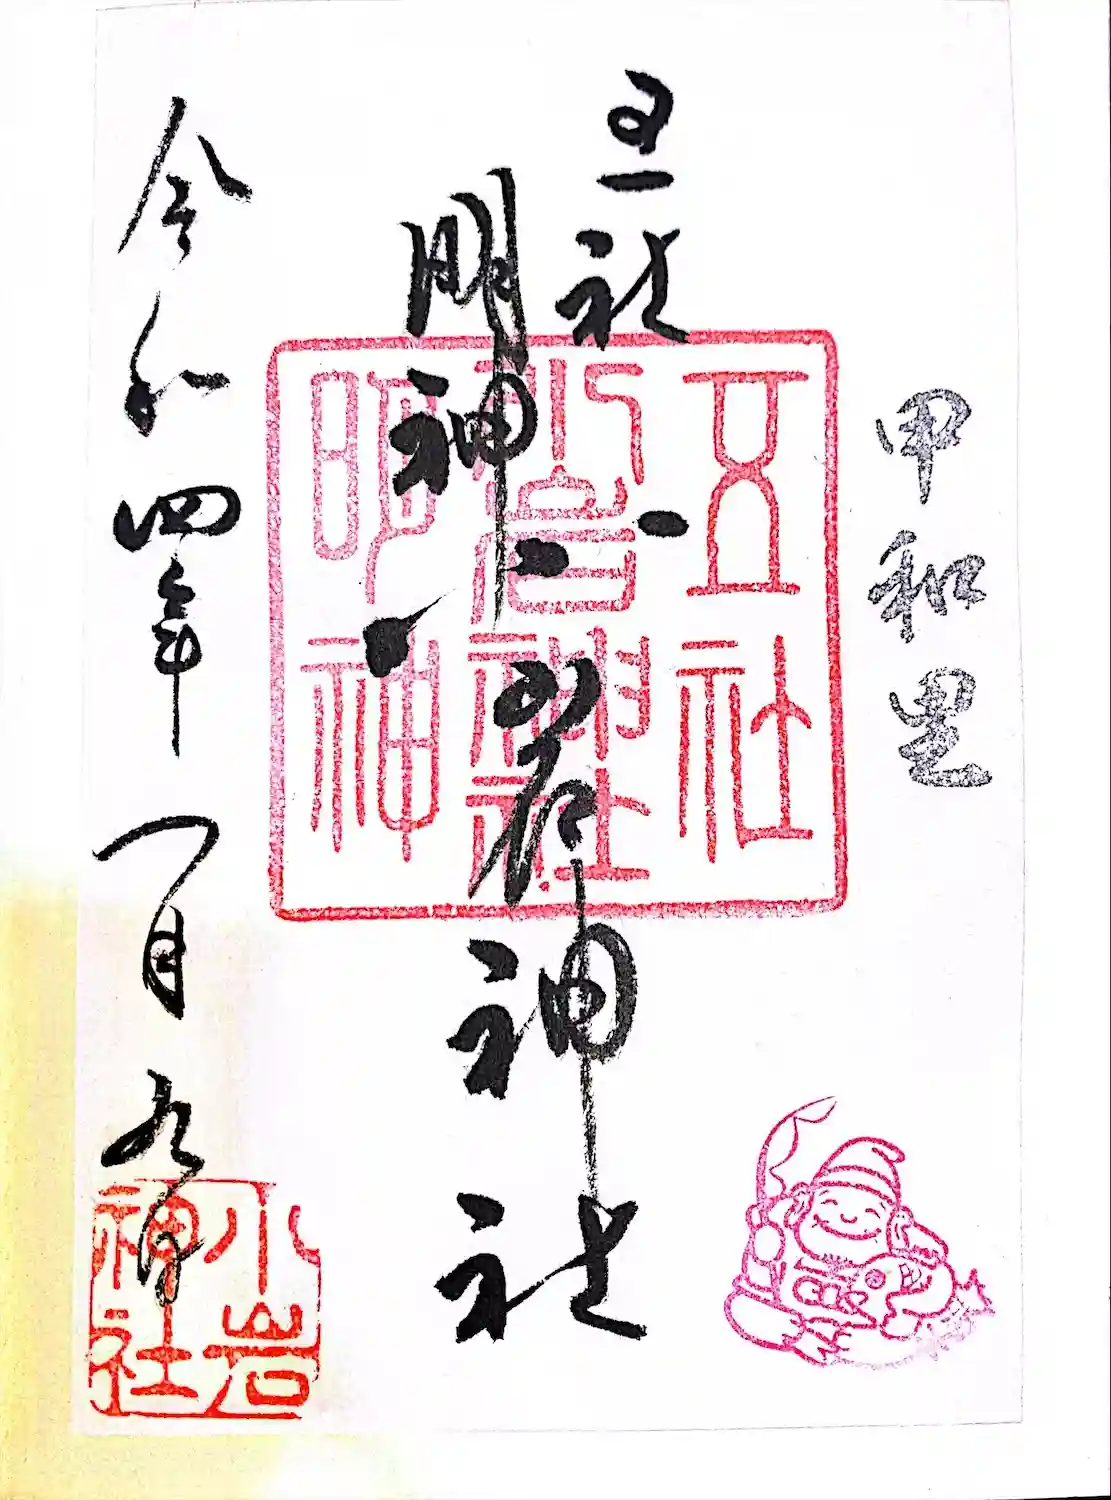 甲和里
五社
明神
小岩神社
令和四年一月九日
五社
小岩神社
明神
小岩
神社